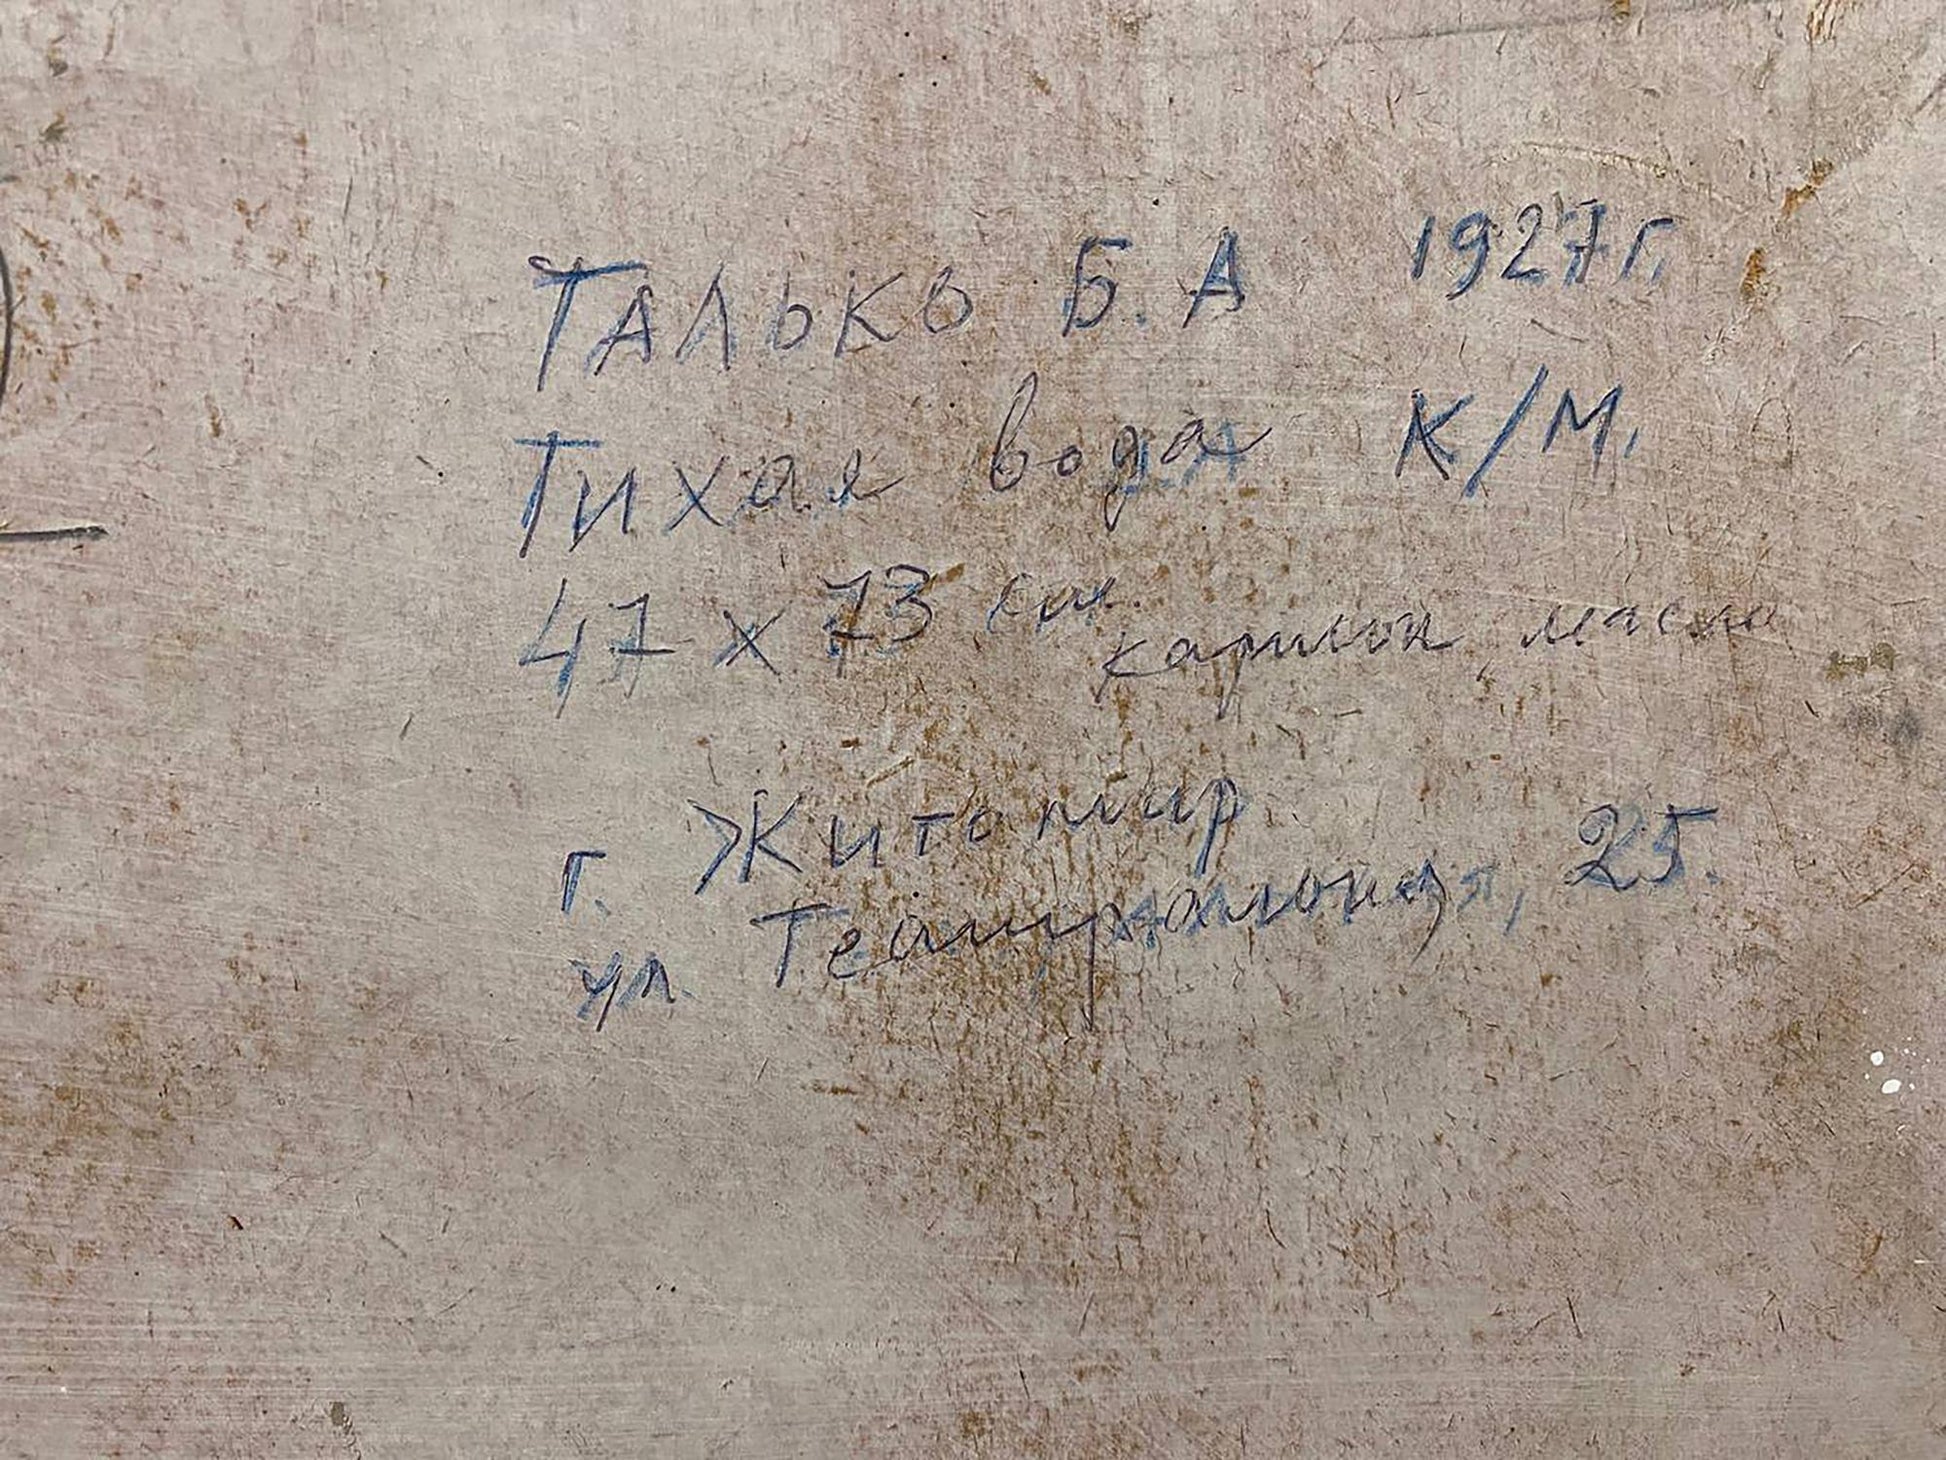 ТАЛЬКО Б. А 1927г.
Тихая вода К/М.
47 х 73 см. картон, масло
г. Житомир
ул. Театральная, 25.